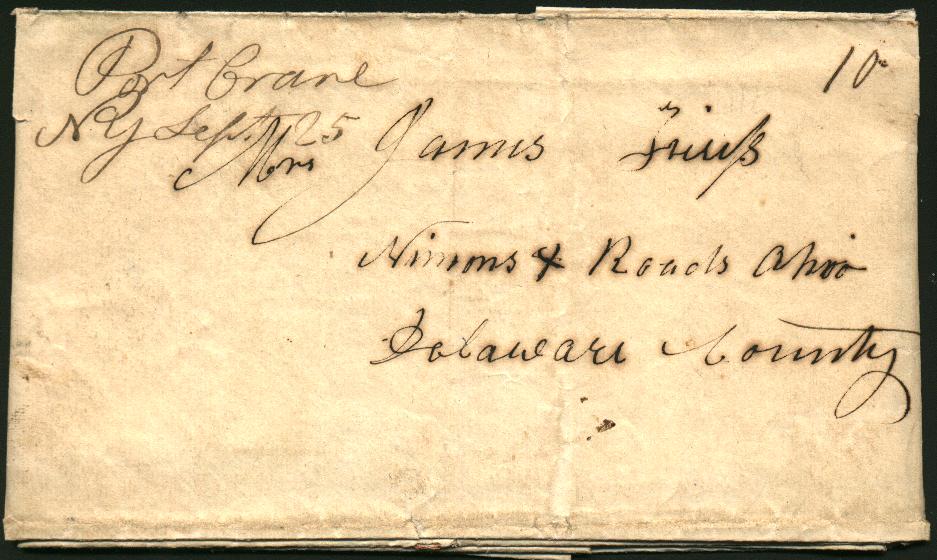 Port Crane
NY Sept 25
10
Mrs James
Nimons X Roads Ohio
Delaware County